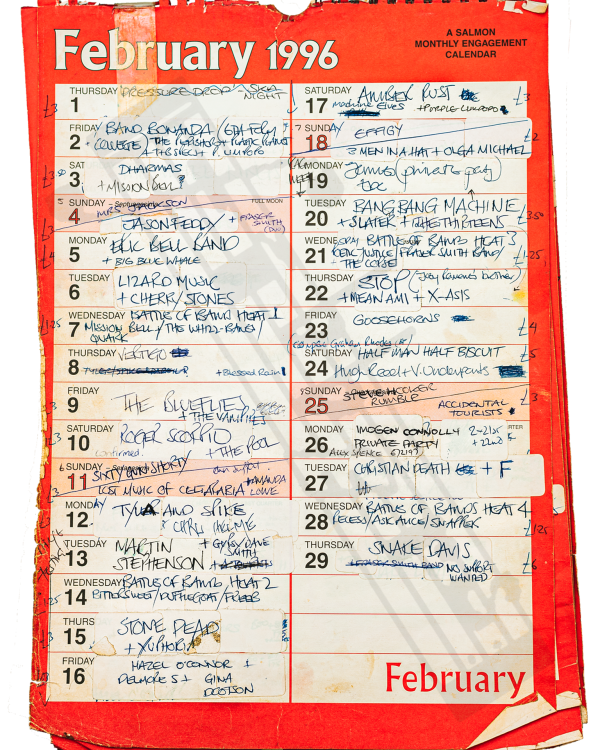 February 1996
A SALMON
MONTHLY ENGAGEMENT
CALENDAR
THURSDAY 1 PRESSURE DROP - SKA
NIGHT
£3
FRIDAY 2 BAND BONANZA
COLLEGE)
SAT 3 DHARMAS
+ MISSION BELL
SUNDAY 4 FULL MOON
MRS JACKSON
JASON FEDDY + FRASER
SMITH
MONDAY 5 ERIC BELL BAND
+ BIG BLUE WHALE
£4
TUESDAY 6 LIZARD MUSIC
+ CHERRY STONES
WEDNESDAY 7 BATTLE OF BANDS HEAT 1
MISSION BELL / THE WHIZZ-BANGS /
QUARK
THURSDAY 8 VERTIGO
+ Blessed Rain
FRIDAY 9 THE BLUEFLIES
+ THE VAMPIRES
SATURDAY 10 ROGER SCORPIO
confirmed. + THE POOL
SUNDAY 11 SIXTY GUN SHORTY
LOST MUSIC OF CELEBARABIA + AMANDA
LOWE
MONDAY 12 TYLA AND SPIKE
TUESDAY 13 MARTIN + GYPSY DAVE
STEPHENSON SMITH
WEDNESDAY 14 BATTLE OF BANDS HEAT 2
BITTERSWEET /
THURS 15 STONE DEAD
+ XUPHORIA
FRIDAY 16 HAZEL O'CONNOR +
DELMORES + GINA
DOOTSON
SATURDAY 17 AMBER RUST £3
Machine Elves
SUNDAY 18 EFFIGY £2
3 MEN IN A HAT + OLGA MICHAEL
MONDAY 19 (private party)
TUESDAY 20 BANG BANG MACHINE £3.50
+ SLATER + THE THIRTEENS
WEDNESDAY 21 BATTLE OF BANDS HEAT 3
POETIC JUSTICE / FRASER SMITH BAND / £1.25
THE CORSE
THURSDAY 22 STOP (Joey Ramone's brother)
+ MEAN AMI + X-ASIS
FRIDAY 23 GOOSEHORNS £4
SATURDAY 24 HALF MAN HALF BISCUIT £5
Hugh Reed + V. Underpants
SUNDAY 25 STEVE HOOKER £3
RUMBLE ACCIDENTAL
TOURISTS
MONDAY 26 IMOGEN CONNOLLY
PRIVATE PARTY
ALEX SPENCE
TUESDAY 27 CHRISTIAN DEATH + F
WEDNESDAY 28 BATTLE OF BANDS HEAT 4
RECESS / ASK ALICE / SNAPPER £1.25
THURSDAY 29 SNAKE DAVIS £6
FRASER SMITH BAND NO SUPPORT
WANTED
February